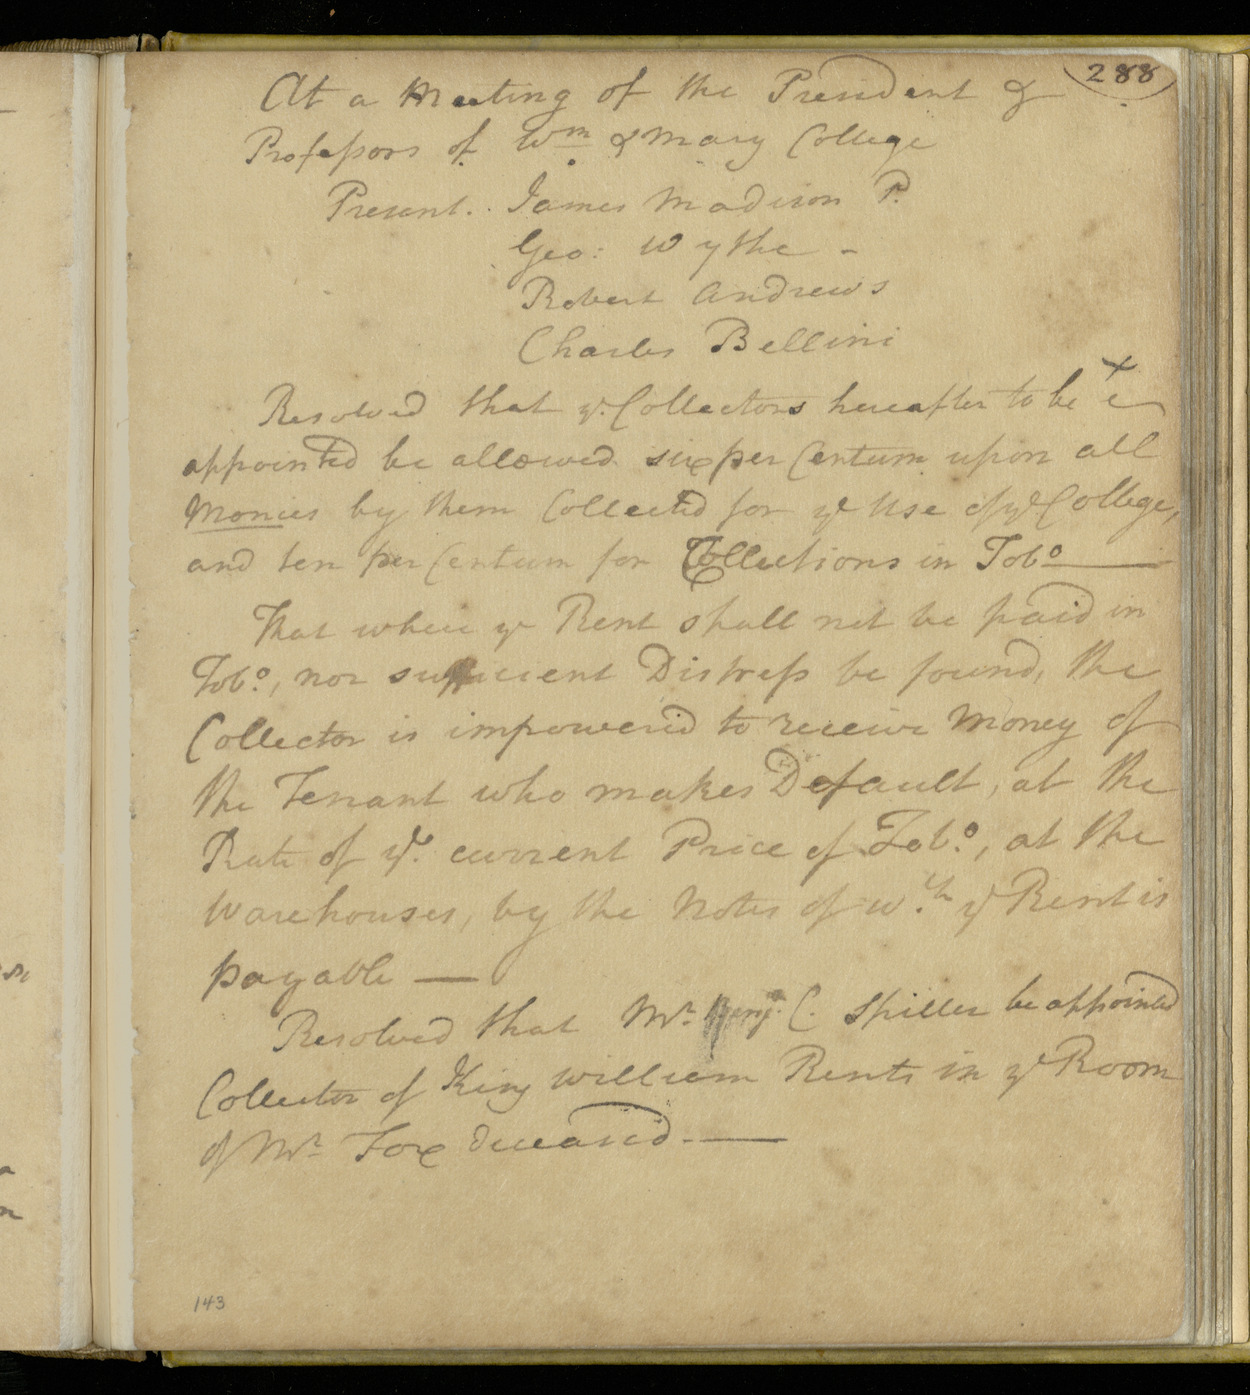 288
At a Meeting of the President &
Professors of Wm & Mary College
Present.. James Madison P.
Geo: Wythe -
Robert Andrews
Charles Bellini
Resolved that ye. Collectors hereafter to be
appointed be allowed six per Centum upon all
Monies by them Collected for ye Use of ye College,
and ten per Centum for Collections in Tobo
That where ye Rent shall not be paid in
Tobo, nor sufficient Distress be found, the
Collector is impowered to receive Money of
the Tenant who makes Default, at the
Rate of ye. current Price of Tobo, at the
Warehouses, by the Notes of w.ch ye Rent is
payable —
Resolved that Mr. Benj. C. Spiller be appointed
Collector of King William Rents in ye Room
of Mr. Fox deceased. —
143